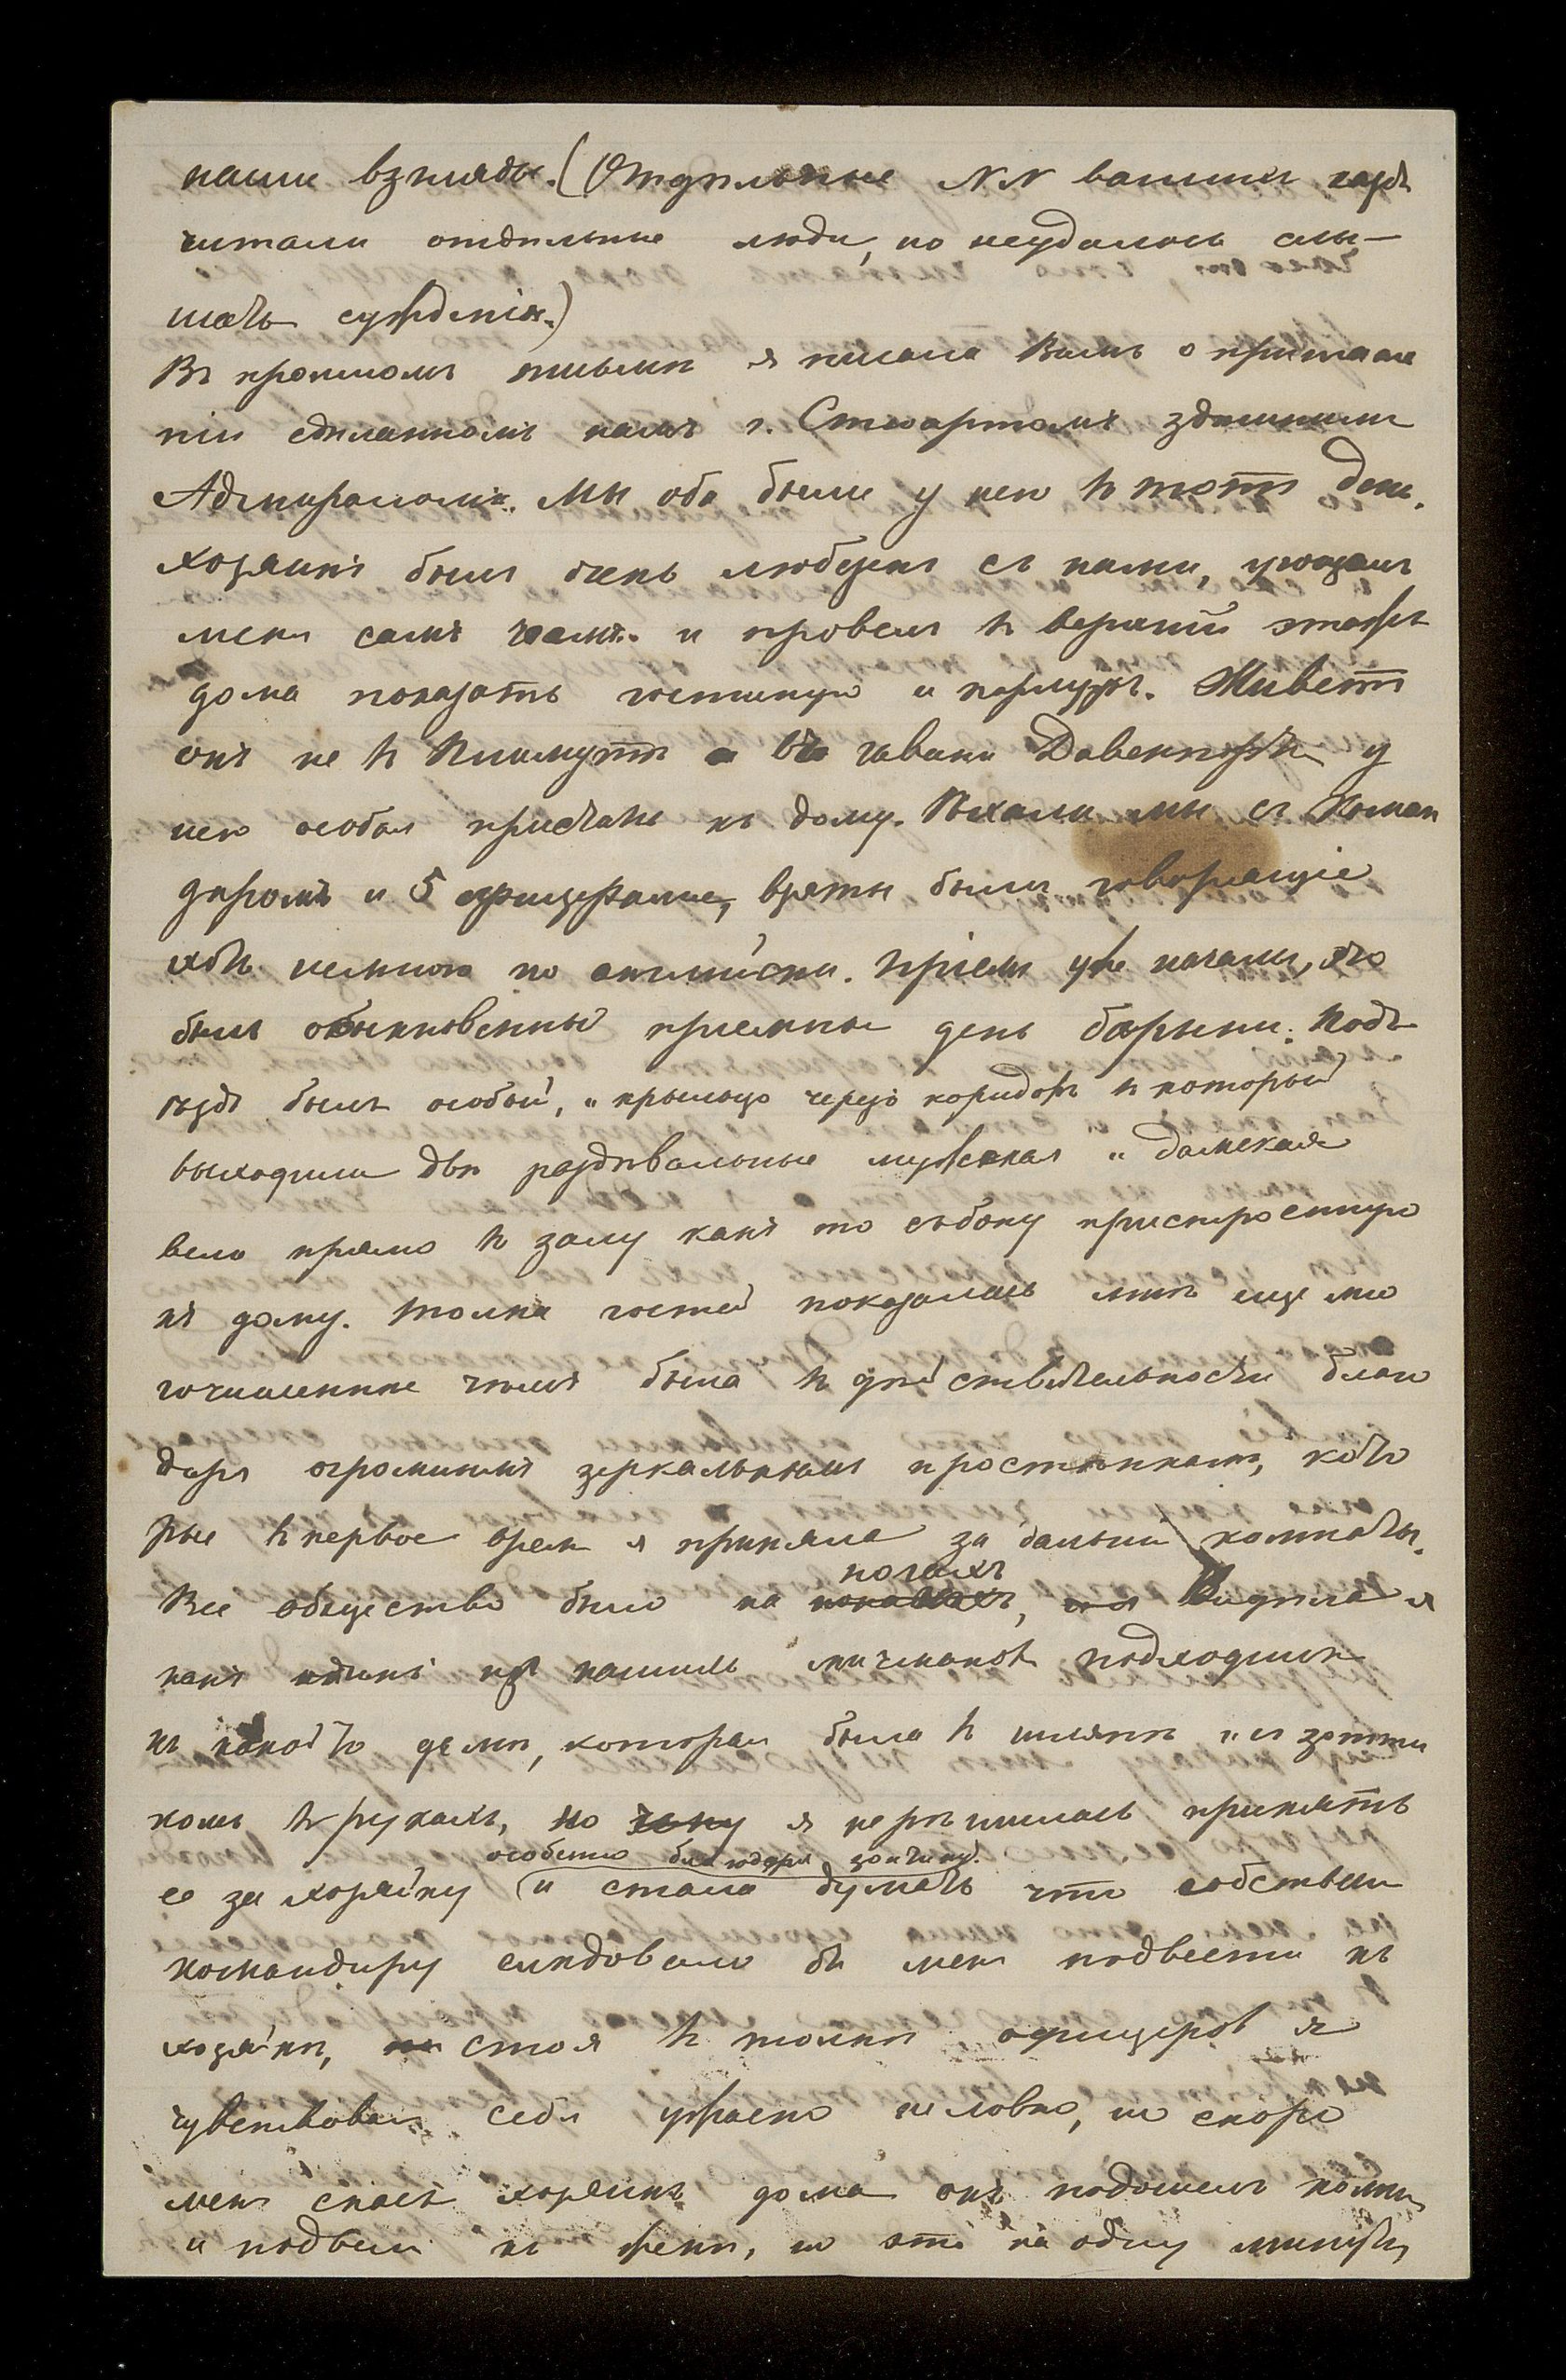 наши взгляды. (Отдѣльные NN вашихъ газ.
читали отдѣльные люди, но неудалось слы-
шать сужденія.)
Въ прошломъ письмѣ я писала Вамъ о приглаше
ніи сдѣланномъ намъ г. Стюартомъ здѣшнимъ
Адмираломъ. Мы оба были у него въ тотъ день.
хозяинъ былъ очень любезенъ съ нами, угощалъ
меня самъ чаемъ и провелъ въ верхній этажъ
дома показать гостиную и . Живетъ
онъ не въ Плимутѣ а въ гавани Давенпортъ у
него особая пристань къ дому. Поѣхали мы съ Коман
диромъ и 5 офицерами, взяты были говорящіе
хоть немного по англійски. Пріемъ уже начался, это
былъ обыкновенный пріемный день барыни. Подъ
ѣздъ былъ особый, и крыльцо черезъ коридоръ въ который
выходили двѣ раздѣвальные мужская и дамская
вело прямо въ залу какъ то съ боку пристроенную
къ дому. Толпа гостей показалась мнѣ еще мно
гочисленнѣе чѣмъ была въ дѣйствительности благо
даря огромнымъ зеркальнымъ простѣнкамъ, кото
рые въ первое время я приняла за дальнія комнаты.
Все общество было на ногахъ, Видѣла я
какъ одинъ изъ нашихъ мичмановъ подходилъ
къ какой то дамѣ, которая была въ шляпѣ и съ зонти
комъ въ рукахъ, но я не рѣшилась принять
особенно благодаря зонтику.
ее за хозяйку и стала думать что собственно
командиру слѣдовало бы меня подвести къ
хозяйкѣ, стоя въ толпѣ офицеровъ я
чувствовала себя ужасно неловко, но скоро
меня спасъ хозяинъ дома онъ подошелъ ко мнѣ
и подвелъ къ женѣ, но это на одну минуту,